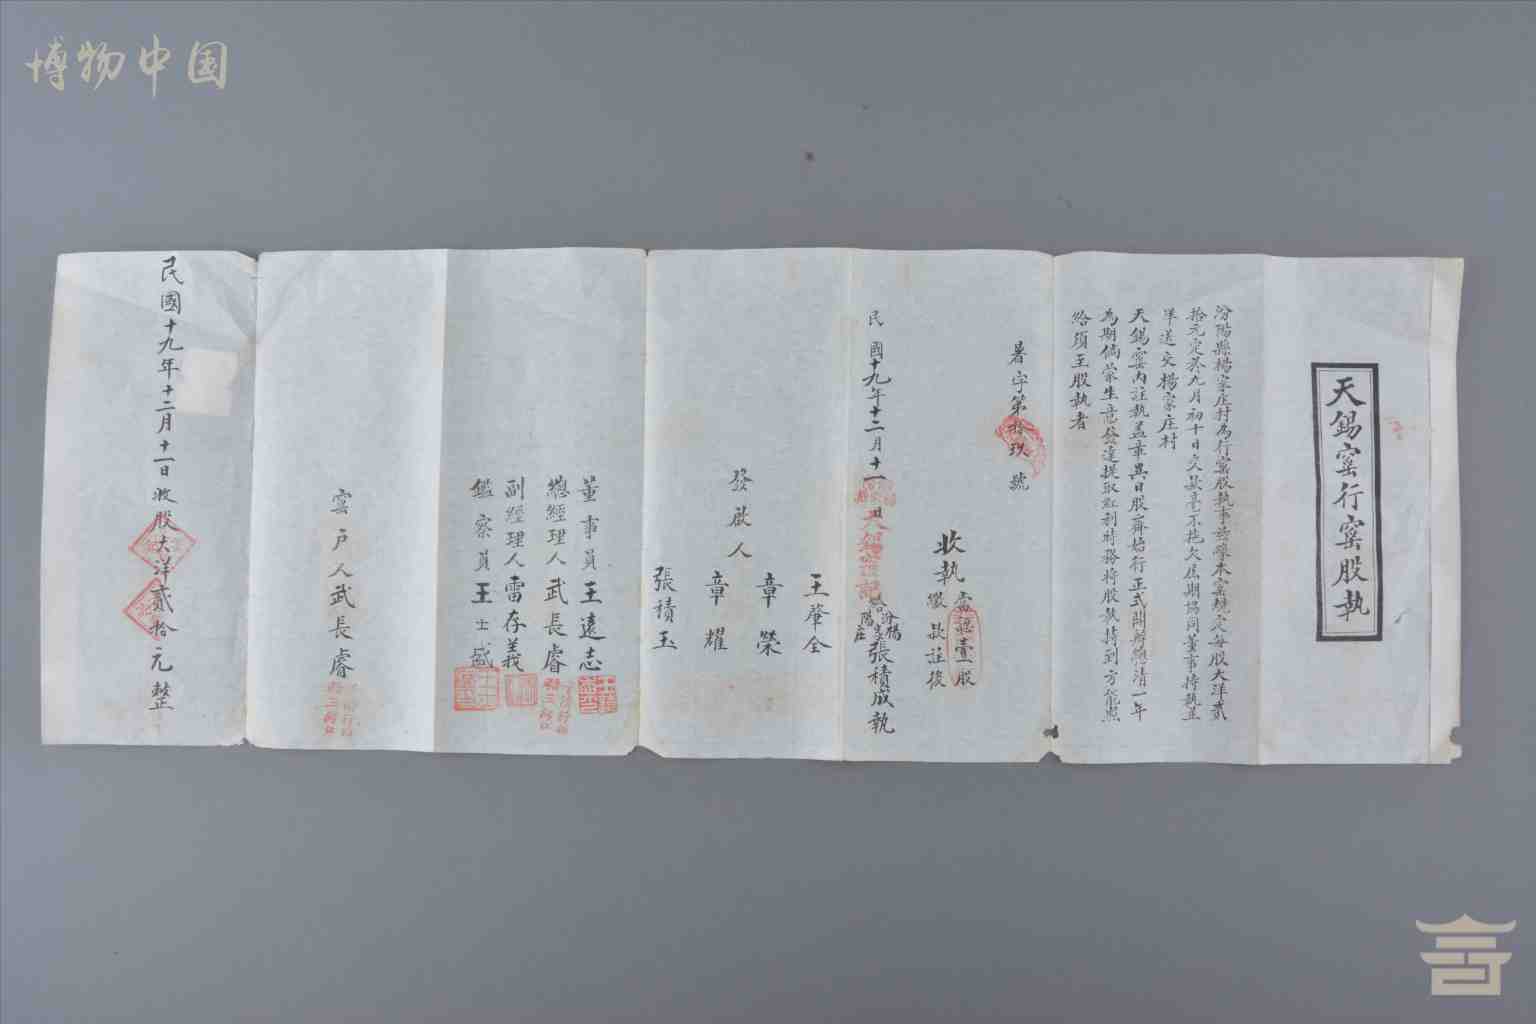 博物中国
天錫窰行窰股執
汾陽縣楊家庄村為行窰股執事茲蒙本窰規定每股大洋貳
拾元定於九月初十日交款毫不拖欠屆期協同董事持執並
洋送交楊家庄村
天錫窰內註執蓋章異日股齊始行正式開辦總清一年
為期倘蒙生意發達提取紅利特務持股執持到方能照
給須至股執者
暑字第拾玖號
當認壹股
收執繳款註後
民國十九年十二月十一日
汾陽楊家庄張積成執
發啟人
王肇全
章榮
章耀
張積玉
董事員王遠志
總經理人武長睿
副經理人雷存義
鑑察員王士盛
窰戶人武長睿
民國十九年十二月十一日收股大洋貳拾元整